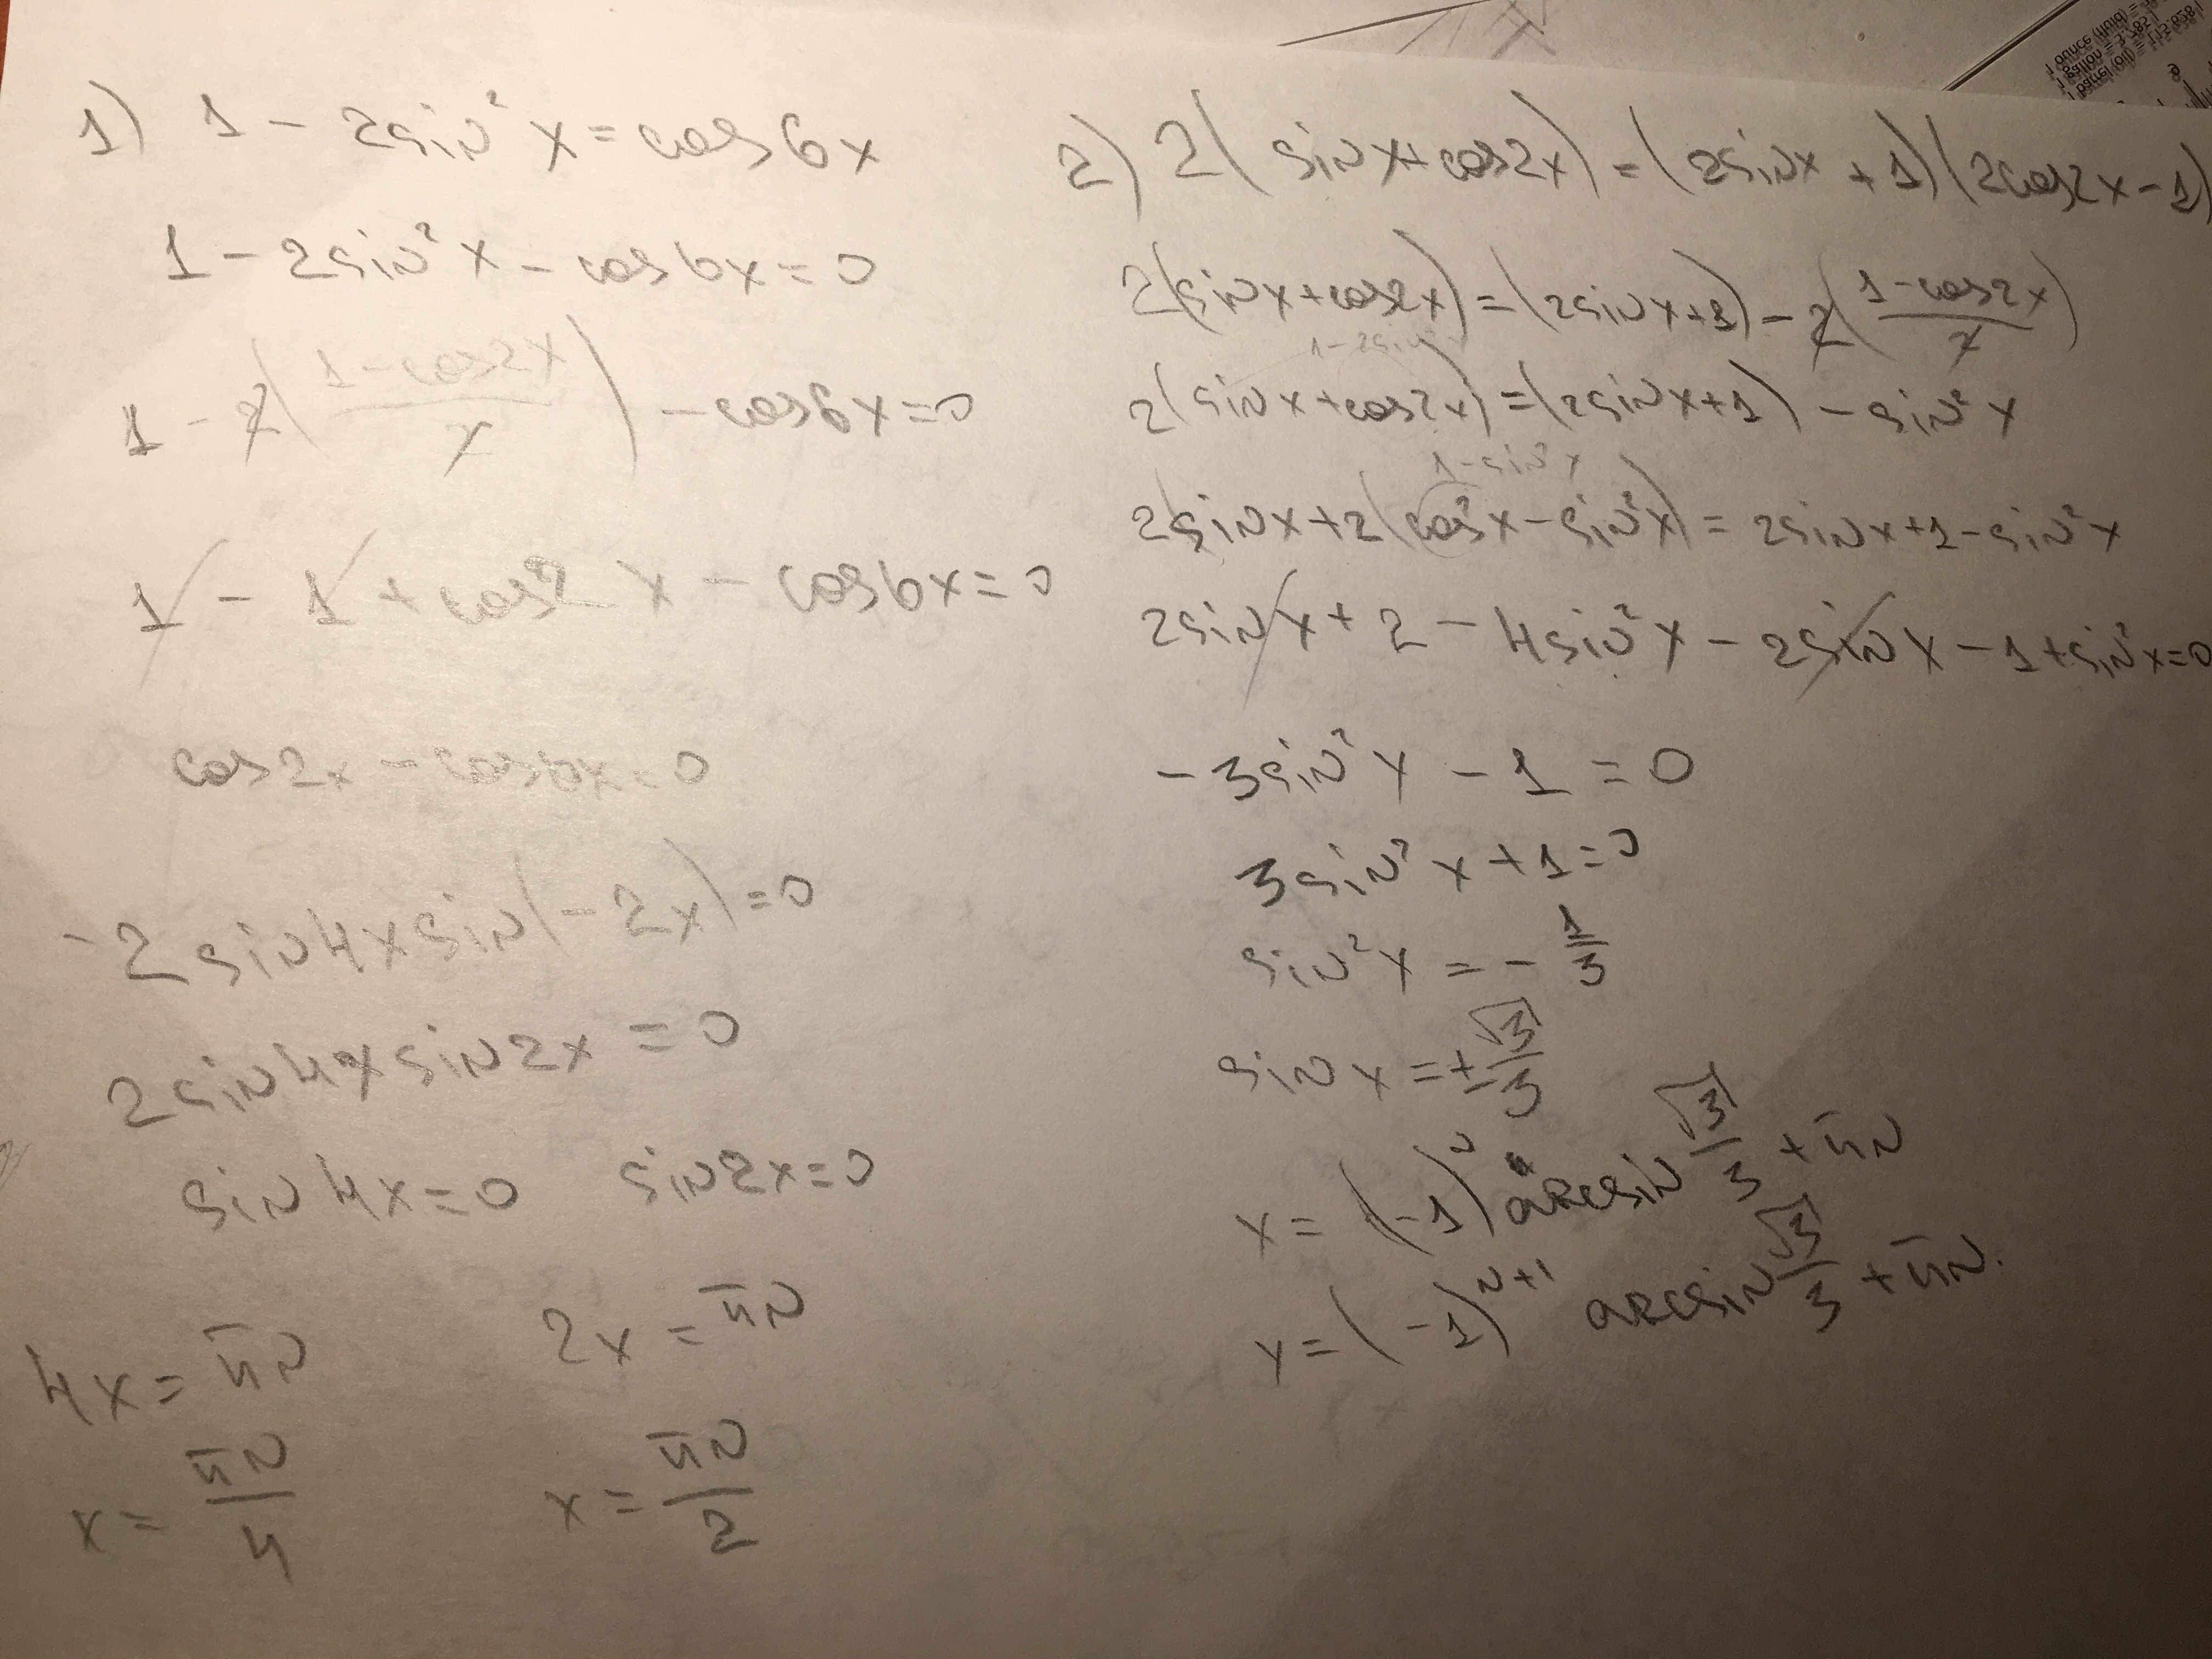 1) 1 - 2sin²x = cos6x
1 - 2sin²x - cos6x = 0
1 - 2(1-cos2x/2) - cos6x = 0
1 - 1 + cos2x - cos6x = 0
cos2x - cos6x = 0
-2sin4xsin(-2x) = 0
2sin4xsin2x = 0
sin4x = 0 sin2x = 0
4x = πn 2x = πn
x = πn/4 x = πn/2
2) 2(sinx+cos2x) = (2sinx + 1)(2cos2x - 1)
2(sinx+cos2x) = (2sinx+1) - 2(1-cos2x/2)
1-2sin²
2(sinx+cos2x) = (2sinx+1) - sin²x
1-sin²x
2sinx+2(cos²x-sin²x) = 2sinx+1-sin²x
2sinx + 2 - 4sin²x - 2sinx - 1 + sin²x = 0
-3sin²x - 1 = 0
3sin²x + 1 = 0
sin²x = -1/3
sinx = ±√3/3
x = (-1)ⁿ arcsin √3/3 + πn
x = (-1)ⁿ⁺¹ arcsin √3/3 + πn.
1 ounce (fluid) =
1 gallon = 3.785 l
1 barrel (oil) = 115.628 l
9